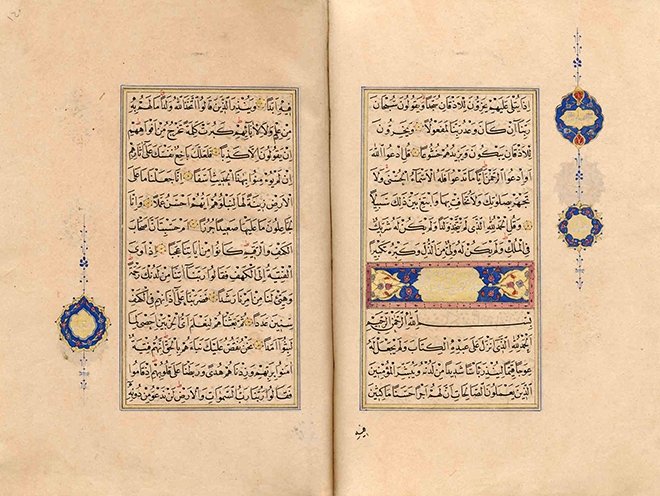 إِذَا يُتْلَى عَلَيْهِمْ يَخِرُّونَ لِلْأَذْقَانِ سُجَّدًا وَيَقُولُونَ سُبْحَانَ
رَبِّنَا إِنْ كَانَ وَعْدُ رَبِّنَا لَمَفْعُولًا وَيَخِرُّونَ
لِلْأَذْقَانِ يَبْكُونَ وَيَزِيدُهُمْ خُشُوعًا قُلِ ادْعُوا اللَّهَ
أَوِ ادْعُوا الرَّحْمَنَ أَيًّا مَا تَدْعُوا فَلَهُ الْأَسْمَاءُ الْحُسْنَى وَلَا
تَجْهَرْ بِصَلَوتِكَ وَلَا تُخَافِتْ بِهَا وَابْتَغِ بَيْنَ ذَلِكَ سَبِيلًا
وَقُلِ الْحَمْدُ لِلَّهِ الَّذِي لَمْ يَتَّخِذْ وَلَدًا وَلَمْ يَكُنْ لَهُ شَرِيكٌ
فِي الْمُلْكِ وَلَمْ يَكُنْ لَهُ وَلِيٌّ مِنَ الذُّلِّ وَكَبِّرْهُ تَكْبِيرًا
بِسْمِ اللَّهِ الرَّحْمَنِ الرَّحِيمِ
الْحَمْدُ لِلَّهِ الَّذِي أَنْزَلَ عَلَى عَبْدِهِ الْكِتَابَ وَلَمْ يَجْعَلْ لَهُ
عِوَجًا قَيِّمًا لِيُنْذِرَ بَأْسًا شَدِيدًا مِنْ لَدُنْهُ وَيُبَشِّرَ الْمُؤْمِنِينَ
الَّذِينَ يَعْمَلُونَ الصَّالِحَاتِ أَنَّ لَهُمْ أَجْرًا حَسَنًا مَاكِثِينَ
فيه
فِيهِ أَبَدًا وَيُنْذِرَ الَّذِينَ قَالُوا اتَّخَذَ اللَّهُ وَلَدًا مَا لَهُمْ بِهِ
مِنْ عِلْمٍ وَلَا لِآبَائِهِمْ كَبُرَتْ كَلِمَةً تَخْرُجُ مِنْ أَفْوَاهِهِمْ
إِنْ يَقُولُونَ إِلَّا كَذِبًا فَلَعَلَّكَ بَاخِعٌ نَفْسَكَ عَلَى آثَارِهِمْ
إِنْ لَمْ يُؤْمِنُوا بِهَذَا الْحَدِيثِ أَسَفًا إِنَّا جَعَلْنَا مَا عَلَى
الْأَرْضِ زِينَةً لَهَا لِنَبْلُوَهُمْ أَيُّهُمْ أَحْسَنُ عَمَلًا وَإِنَّا
لَجَاعِلُونَ مَا عَلَيْهَا صَعِيدًا جُرُزًا أَمْ حَسِبْتَ أَنَّ أَصْحَابَ
الْكَهْفِ وَالرَّقِيمِ كَانُوا مِنْ آيَاتِنَا عَجَبًا إِذْ أَوَى
الْفِتْيَةُ إِلَى الْكَهْفِ فَقَالُوا رَبَّنَا آتِنَا مِنْ لَدُنْكَ رَحْمَةً
وَهَيِّئْ لَنَا مِنْ أَمْرِنَا رَشَدًا فَضَرَبْنَا عَلَى آذَانِهِمْ فِي الْكَهْفِ
سِنِينَ عَدَدًا ثُمَّ بَعَثْنَاهُمْ لِنَعْلَمَ أَيُّ الْحِزْبَيْنِ أَحْصَى لِمَا
لَبِثُوا أَمَدًا نَحْنُ نَقُصُّ عَلَيْكَ نَبَأَهُمْ بِالْحَقِّ إِنَّهُمْ فِتْيَةٌ
آمَنُوا بِرَبِّهِمْ وَزِدْنَاهُمْ هُدًى وَرَبَطْنَا عَلَى قُلُوبِهِمْ إِذْ قَامُوا
فَقَالُوا رَبُّنَا رَبُّ السَّمَوَاتِ وَالْأَرْضِ لَنْ نَدْعُوَ مِنْ دُونِهِ